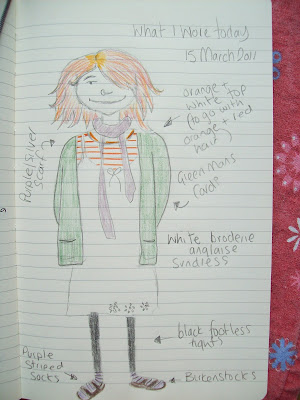 What I Wore today
15 March 2011
orange +
white top
(to go with
orange + red
hair)
Purple/silver
scarf
Green mans
Cardi
White broderie
anglaise
sundress
black footless
tights
Purple
Striped
Socks
Birkenstocks